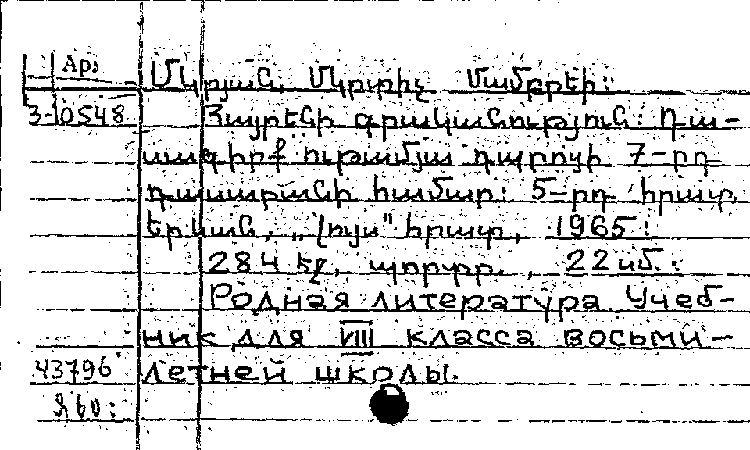 Ար
Մկրյան, Մկրտիչ Մամբրեի:
3-0548 Հայրենի գրականություն: Դա-
սագիրք ութամյա դպրոցի 7-րդ
դասարանի համար: 5-րդ հրատ.
Երևան, „Լույս" հրատ, 1965:
284 էջ, պորտր., 22 սմ.:
Родная литература. Учеб-
ник для VIII класса восьми-
43796 летней школы.